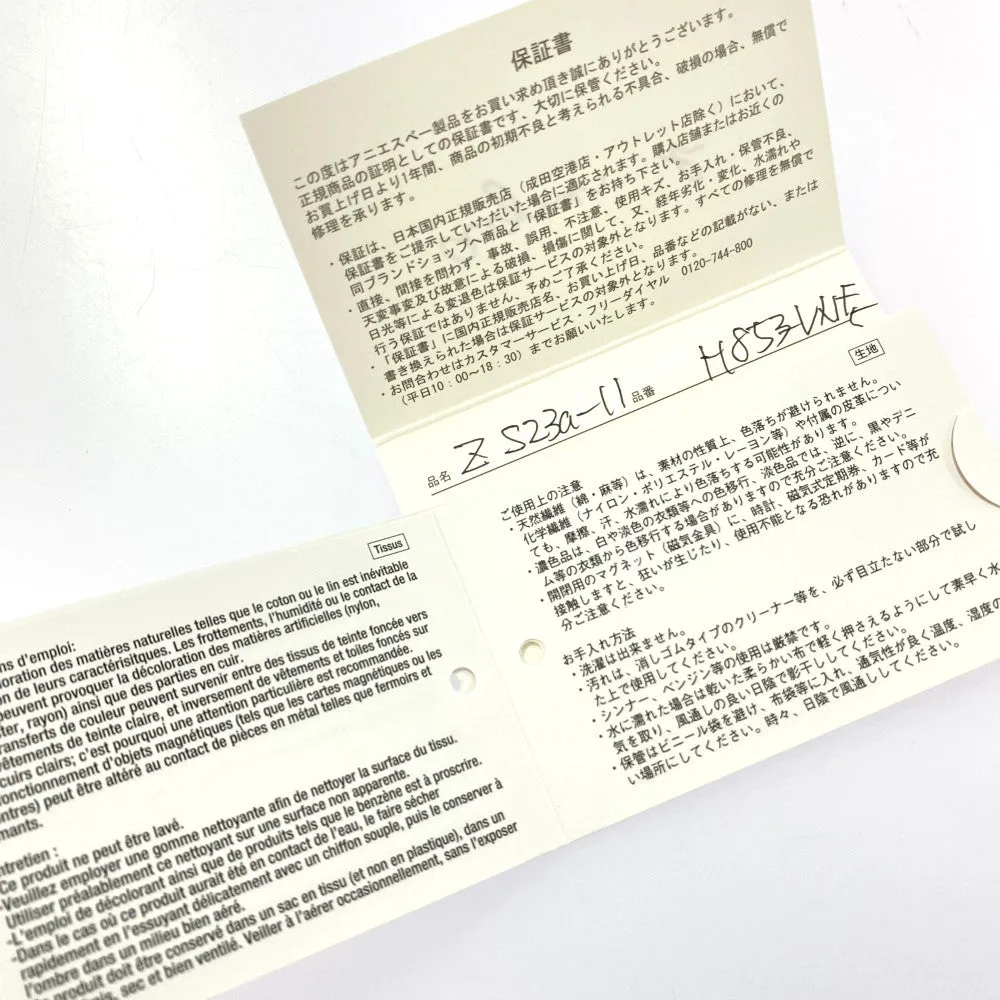 保証書
この度はアニエスベー製品をお買い求め頂き誠にありがとうございます。
正規商品の証明としての保証書です、大切に保管ください。
お買上げ日より1年間、商品の初期不良と考えられる不具合、破損の場合、無償で
修理を承ります。
・保証は、日本国内正規販売店（成田空港店・アウトレット店除く）において、
保証書をご提示していただいた場合に適応されます。購入店舗またはお近くの
同ブランドショップへ商品と「保証書」をお持ち下さい。
・直接、間接を問わず、事故、誤用、不注意、使用キズ、お手入れ・保管不良、
天変事変及び故意による破損、損傷に関して、又、経年劣化・変化、水濡れや
日光等による変退色は保証サービスの対象外となります。すべての修理を無償で
行う保証ではありません、予めご了承ください。
・「保証書」に国内正規販売店名、お買い上げ日、品番などの記載がない、または
書き換えられた場合は保証サービスの対象外となります。
・お問合わせはカスタマーサービス・フリーダイヤル 0120-744-800
（平日10：00～18：30）までお願いいたします。
品名 Z S23a-11 品番 H853-VNF
生地
ご使用上の注意
・天然繊維（綿・麻等）は、素材の性質上、色落ちが避けられません。
化学繊維（ナイロン・ポリエステル・レーヨン等）や付属の皮革につい
ても、摩擦、汗、水濡れにより色落ちする可能性があります。
・濃色品は、白や淡色の衣類等への色移行、淡色品では、逆に、黒やデニ
ム等の衣類から色移行する場合がありますので充分ご注意ください。
・開閉用のマグネット（磁気金具）に、時計、磁気式定期券、カード等が
接触しますと、狂いが生じたり、使用不能となる恐れがありますので充
分ご注意ください。
お手入れ方法
・洗濯は出来ません。
・汚れは、消しゴムタイプのクリーナー等を、必ず目立たない部分で試し
た上で使用してください。
・シンナー、ベンジン等の使用は厳禁です。
・水に濡れた場合は乾いた柔らかい布で軽く押さえるようにして素早く水
気を取り、風通しの良い日陰で影干ししてください。
・保管はビニール袋を避け、布袋等に入れ、通気性が良く温度、湿度の
い場所にしてください。時々、日陰で風通しして
Tissus
ns d'emploi:
oration des matières naturelles telles que le coton ou le lin est inévitable
on de leurs caractérisitques. Les frottements, l'humidité ou le contact de la
peuvent provoquer la décoloration des matières artificielles (nylon,
ter, rayon) ainsi que des parties en cuir.
ransferts de couleur peuvent survenir entre des tissus de teinte foncée vers
vêtements de teinte claire, et inversement de vêtements et toiles foncés sur
cuirs clairs; c'est pourquoi une attention particulière est recommandée.
onctionnement d'objets magnétiques (tels que les cartes magnétiques ou les
ntres) peut être altéré au contact de pièces en métal telles que fermoirs et
mants.
ntretien :
Ce produit ne peut être lavé.
-Veuillez employer une gomme nettoyante afin de nettoyer la surface du tissu.
Utiliser préalablement ce nettoyant sur une surface non apparente.
-L'emploi de décolorant ainsi que de produits tels que le benzène est à proscrire.
-Dans le cas où ce produit aurait été en contact de l'eau, le faire sécher
rapidement en l'essuyant délicatement avec un chiffon souple, puis le conserver à
l'ombre dans un milieu bien aéré.
produit doit être conservé dans un sac en tissu (et non en plastique), dans un
is, sec et bien ventilé. Veiller à l'aérer occasionnellement, sans l'exposer